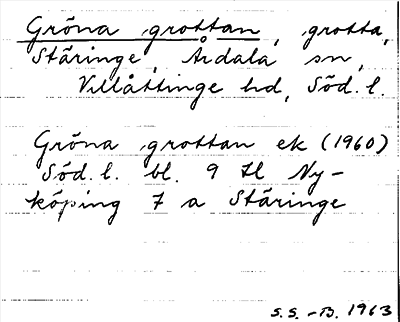 Gröna grottan, grotta,
Stäringe, Årdala sn,
Villåttinge hd, Söd. l.
Gröna grottan ek (1960)
Söd. l. bl. 9 H Ny-
köping 7 a Stäringe
S.S. -B. 1963